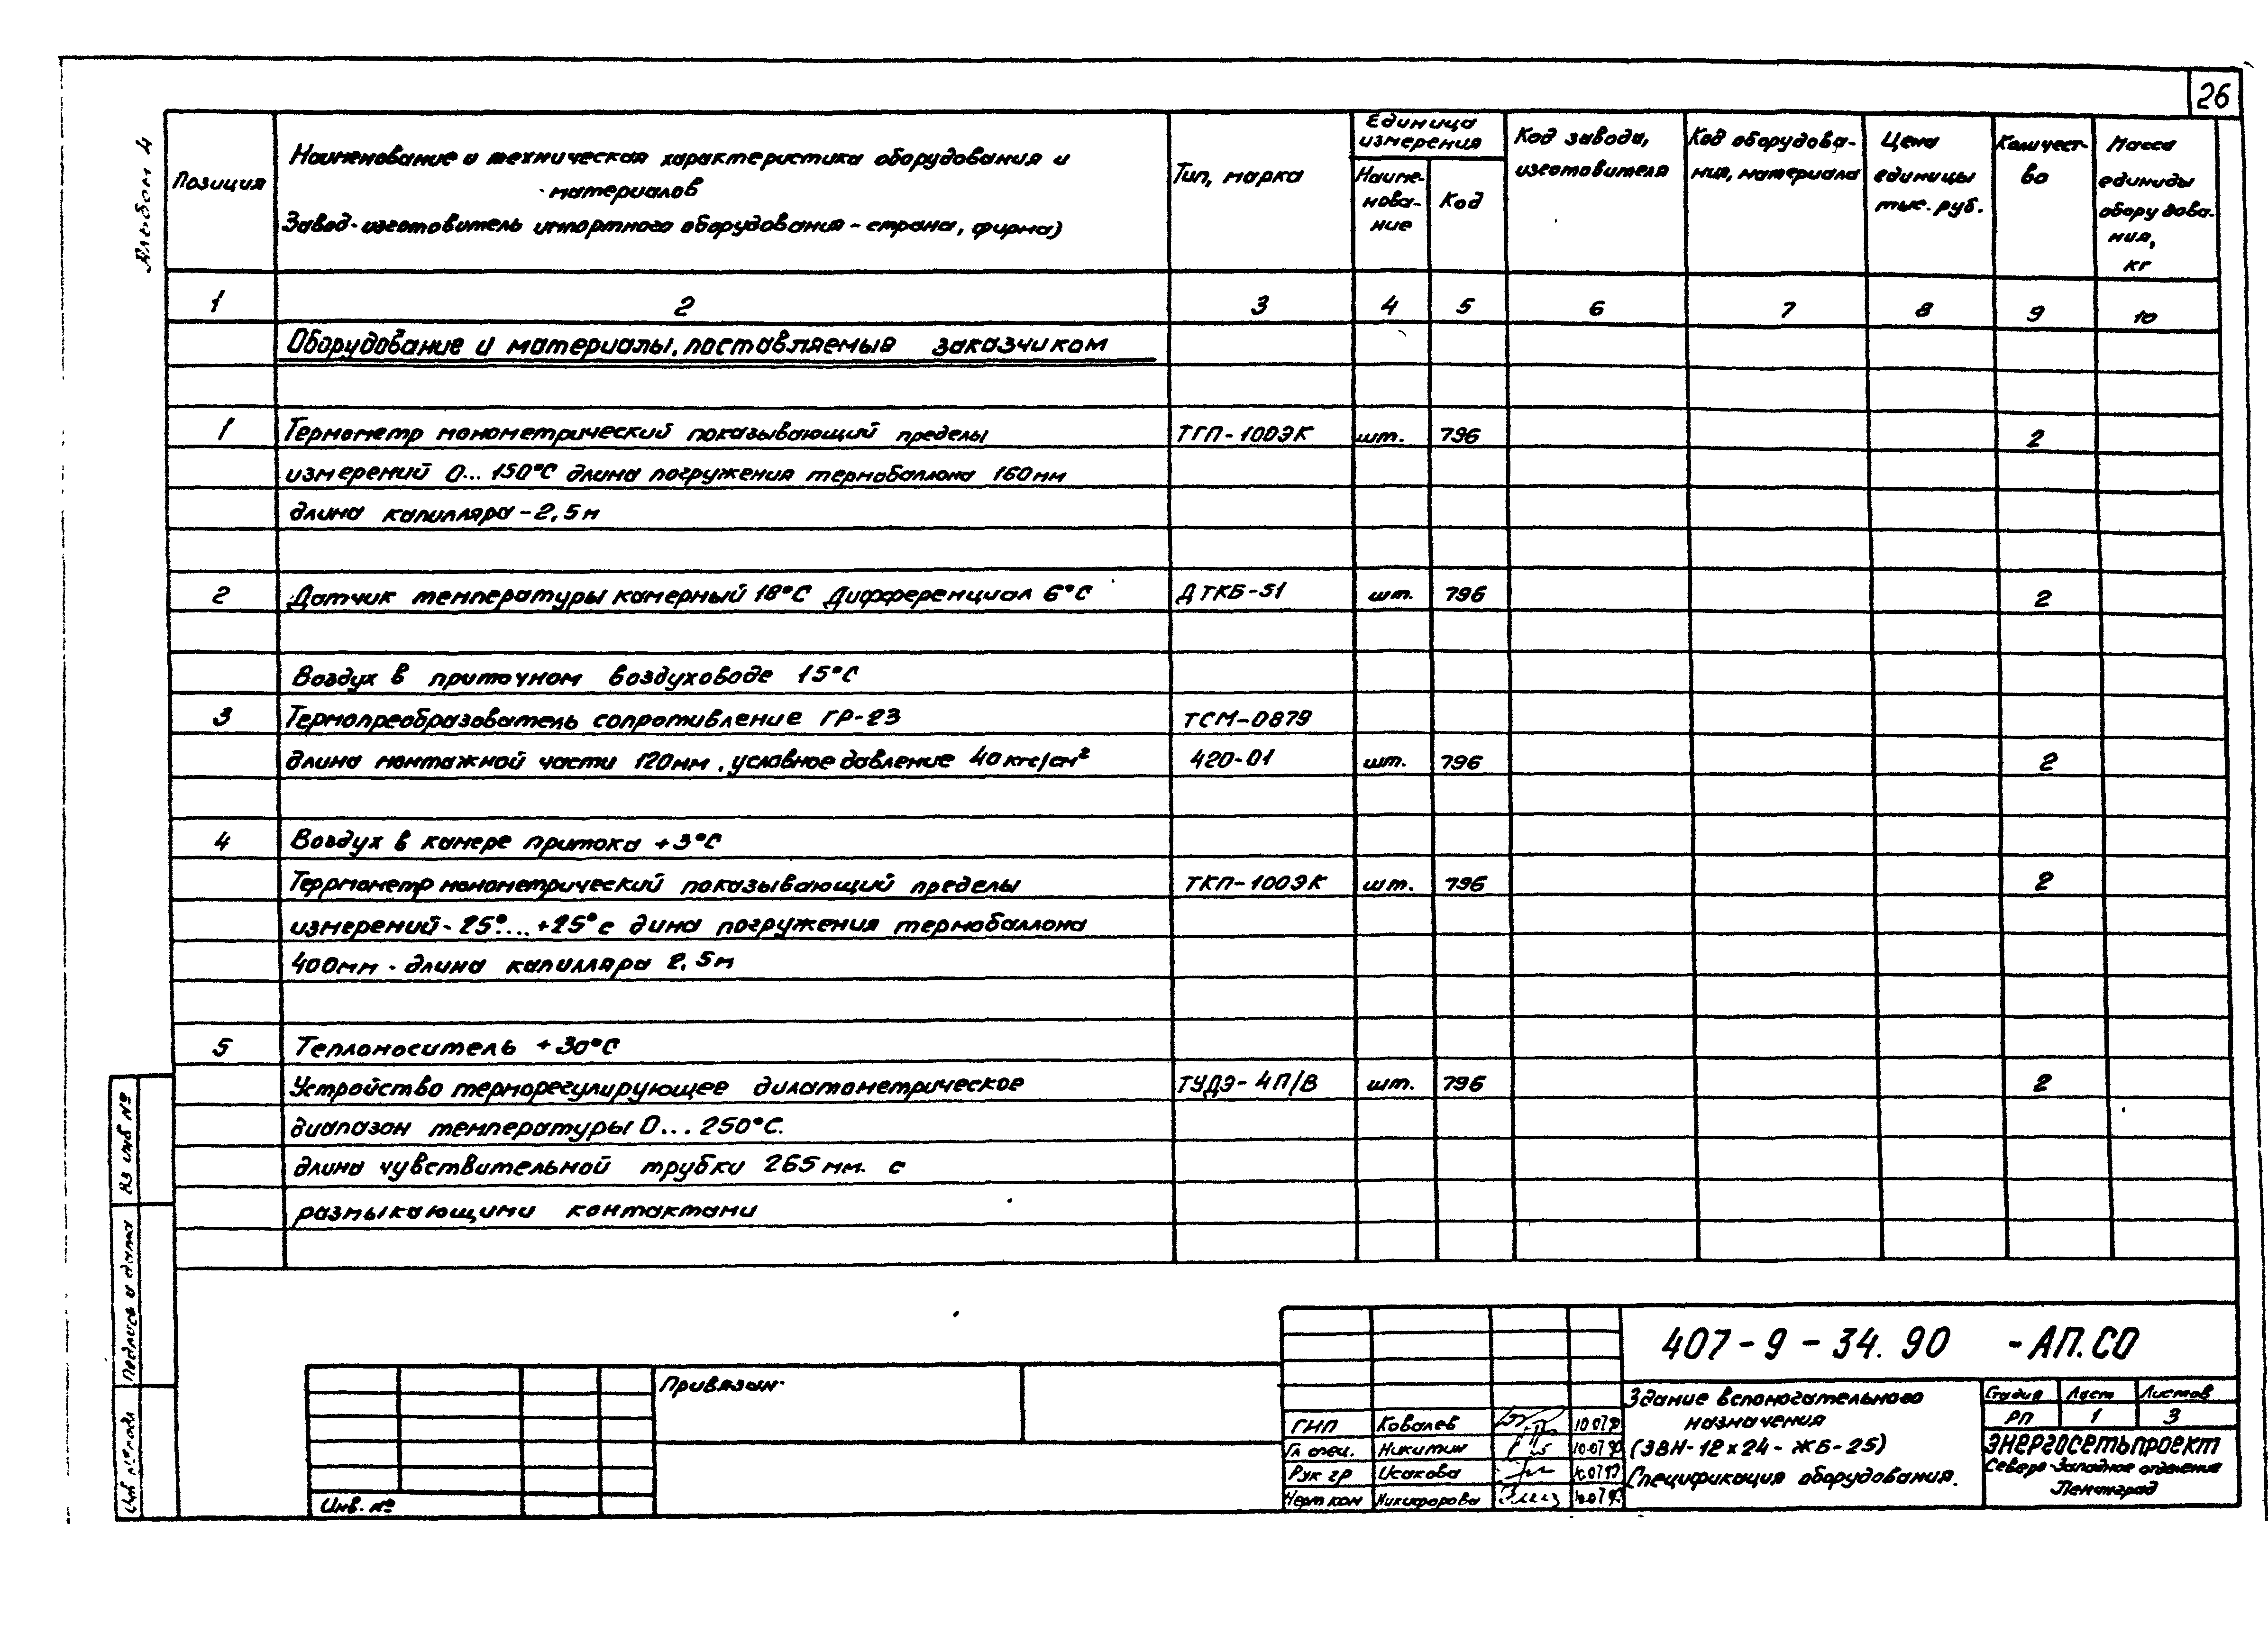 26
Альбом 4
Позиция
Наименование и техническая характеристика оборудования и
материалов
Завод-изготовитель импортного оборудования - страна, фирма)
Тип, марка
Единица
измерения
Наиме-
нова-
ние
Код
Код завода,
изготовителя
Код оборудова-
ния, материала
Цена
единицы
тыс. руб.
Количест-
во
Масса
единицы
оборудова-
ния,
кг
1 2 3 4 5 6 7 8 9 10
Оборудование и материалы, поставляемые заказчиком
1 Термометр манометрический показывающий пределы ТГП-100ЭК шт. 796 2
измерений 0... 150°С длина погружения термобаллона 160мм
длина капилляра-2,5м
2 Датчик температуры камерный 18°С Дифференциал 6°С ДТКБ-51 шт. 796 2
Воздух в приточном воздуховоде 15°С
3 Термопреобразователь сопротивление ГР-23 ТСМ-0879
длина монтажной части 120мм, условное давление 40 кгс/см² 420-01 шт. 796 2
4 Воздух в камере притока +3°С
Терpмометр манометрический показывающий пределы ТКП-100ЭК шт. 796 2
измерений-25°...+25°с дина погружения термобаллона
400мм. длина капилляра 2,5м
5 Теплоноситель +30°С
Устройство терморегулирующее дилатометрическое ТУДЭ-4П/В шт. 796 2
диапазон температуры 0... 250°С.
длина чувствительной трубки 265мм. с
размыкающими контактами
Вз инв №
Подпись и дата
Инв № подл
Привязан
Инв. №
407-9-34.90 -АП.СО
ГИП Ковалев 10.07.90
Гл спец. Никитин 10.07.90
Рук гр Исакова 10.07.90
Черт ком Никифорова 10.07.90
Здание вспомогательного
назначения
(ЗВН-12х24-ЖБ-25)
Спецификация оборудования.
Стадия Лист Листов
РП 1 3
ЭНЕРГОСЕТЬПРОЕКТ
Северо-Западное отделение
Ленинград